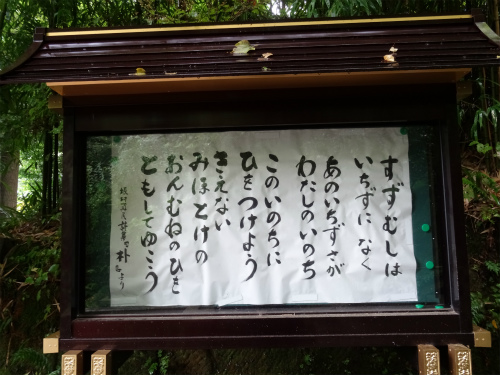 すずむしは
いちずに なく
あのいちずさが
わたしのいのち
このいのちに
ひをつけよう
きえない
みほとけの
おんむねのひを
ともしてゆこう
坂村真民詩集 朴 より